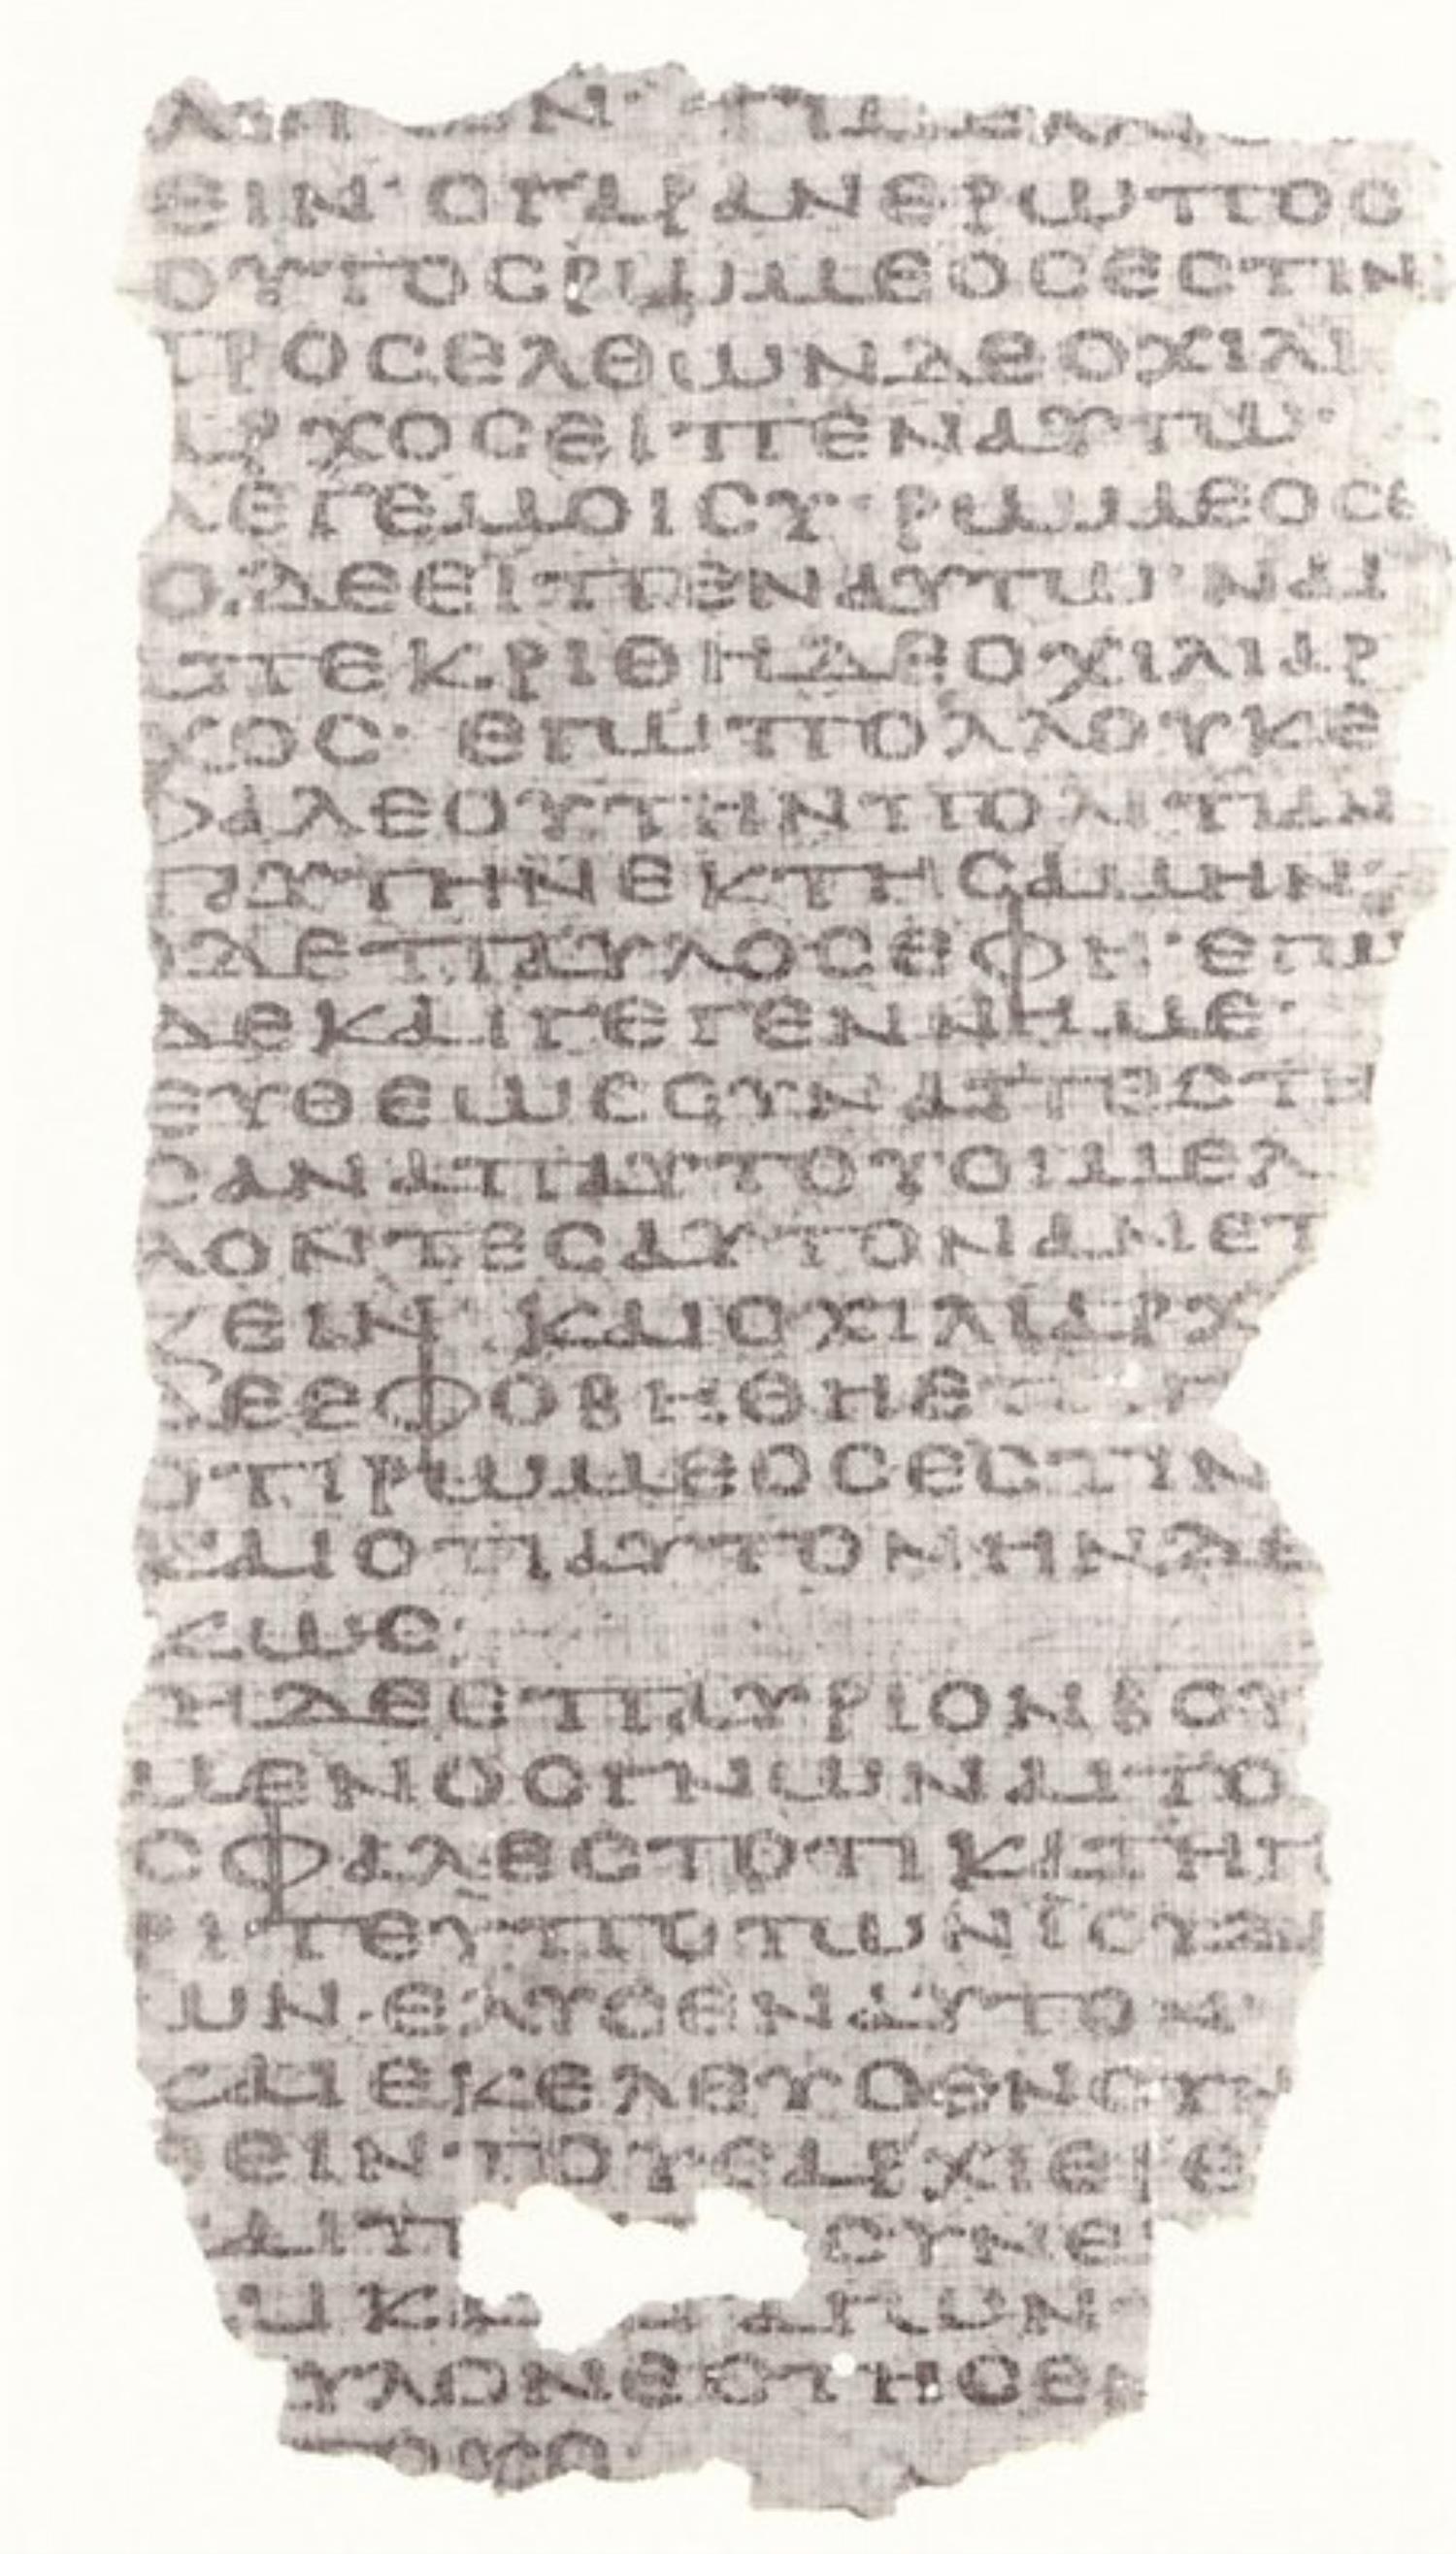 ΕΙΝ· ΟΓΑΡΑΝΘΡΩΠΟΣ
ΟΥΤΟΣΡΩΜΕΟΣΕΣΤΙΝ
ΠΡΟΣΕΛΘΩΝΔΕΟΧΙΛΙ
ΑΡΧΟΣΕΙΠΕΝΑΥΤΩ·
ΛΕΓΕΜΟΙΣΥ· ΡΩΜΕΟΣΕ
Ο·ΔΕΕΙΠΕΝΑΥΤΩΙ·ΝΑΙ
ΑΠΕΚΡΙΘΗΔΕΟΧΙΛΙΑΡ
ΧΟΣ· ΕΓΩΠΟΛΛΟΥΚΕ
ΦΑΛΕΟΥΤΗΝΠΟΛΙΤΙΑΝ
ΤΑΥΤΗΝΕΚΤΗΣΑΜΗΝ·
ΟΔΕΠΑΥΛΟΣΕΦΗ·ΕΓΩ
ΔΕΚΑΙΓΕΓΕΝΝΗΜΕ·
ΕΥΘΕΩΣΟΥΝΑΠΕΣΤΗ
ΣΑΝΑΠΑΥΤΟΥΟΙΜΕΛ
ΛΟΝΤΕΣΑΥΤΟΝΑΝΕΤ
ΖΕΙΝ· ΚΑΙΟΧΙΛΙΑΡΧ
ΔΕΕΦΟΒΗΘΗΕ
ΟΤΙΡΩΜΕΟΣΕΣΤΙΝ
ΚΑΙΟΤΙΑΥΤΟΝΗΝΔΕ
ΚΩΣ·
ΤΗΔΕΕΠΑΥΡΙΟΝΒΟΥ
ΜΕΝΟΣΓΝΩΝΑΙΤΟ
ΣΦΑΛΕΣΤΟΤΙΚΑΤΗΓ
ΡΙΤΕΥΠΟΤΩΝΙΟΥΔΑΙ
ΩΝ·ΕΛΥΣΕΝΑΥΤΟΝ
ΚΑΙΕΚΕΛΕΥΣΕΝΣΥΝ
ΘΕΙΝ·ΤΟΥΣΑΡΧΙΕΡΕ
ΚΑΙΠ ΣΥΝΕ
ΟΝΚΑ ΑΓΩΝ
ΥΛΟΝΕΣΤΗΣΕΝ